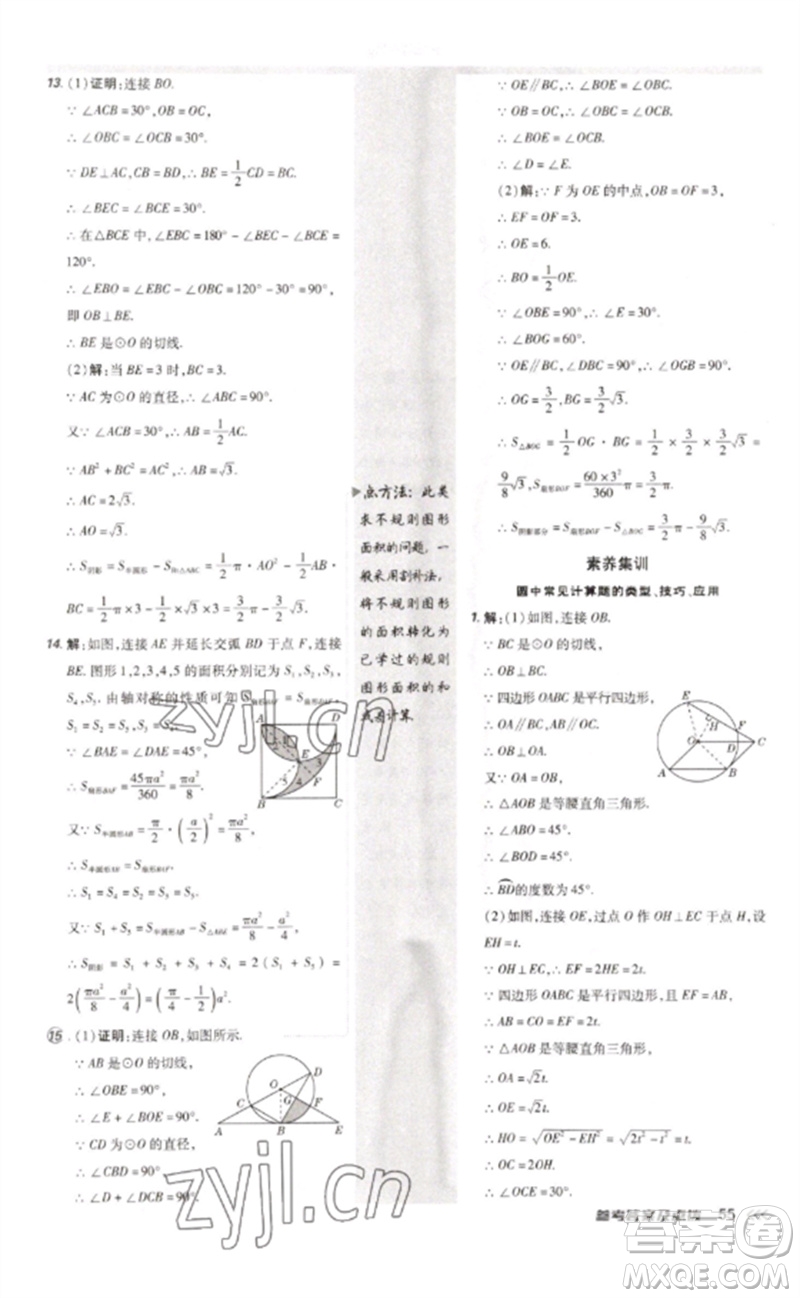 13. (1)证明:连接 BO.
∵ ∠ACB = 30°,OB = OC,
∴ ∠OBC = ∠OCB = 30°.
∵ DE⊥AC,CB = BD,∴ BE = 1/2 CD = BC.
∴ ∠BEC = ∠BCE = 30°.
∴ 在△BCE 中,∠EBC = 180° − ∠BEC − ∠BCE =
120°.
∴ ∠EBO = ∠EBC − ∠OBC = 120° − 30° = 90°,
即 OB⊥BE.
∴ BE 是⊙O 的切线.
(2)解:当 BE = 3 时,BC = 3.
∵ AC 为⊙O 的直径,∴ ∠ABC = 90°.
又∵ ∠ACB = 30°,∴ AB = 1/2 AC.
∵ AB² + BC² = AC²,∴ AB = √3.
∴ AC = 2√3.
∴ AO = √3.
∴ S阴影 = S半圆形 − S Rt△ABC = 1/2 π · AO² − 1/2 AB ·
BC = 1/2 π × 3 − 1/2 × √3 × 3 = 3/2 π − 3/2 √3.
14. 解:如图,连接 AE 并延长交弧 BD 于点 F,连接
BE. 图形 1,2,3,4,5 的面积分别记为 S₁,S₂,S₃,
S₄,S₅. 由轴对称的性质可知
S₅ = S₅.
∵ ∠BAE = ∠DAE = 45°,
∴ S扇形BAF = 45πa²/360 = πa²/8.
又∵ S半圆形AB = π/2 · (a/2)² = πa²/8,
∴ S半圆形AB = S扇形BAF.
∴ S₁ = S₄ = S₂ = S₃.
又∵ S₁ + S₅ = S半圆形AB − S△ABE = πa²/8 − a²/4,
∴ S阴影 = S₁ + S₂ + S₄ + S₅ = 2(S₁ + S₅) =
2(πa²/8 − a²/4) = πa²/4 − a²/2.
15. (1)证明:连接 OB,如图所示.
∵ AB 是⊙O 的切线,
∴ ∠OBE = 90°.
∴ ∠E + ∠BOE = 90°.
∵ CD 为⊙O 的直径,
∴ ∠CBD = 90°.
∴ ∠D + ∠DCB = 90°.
A D
1 2 3 E
5 4 F
B C
D O G C F A B E
点方法:此类
求不规则图形
面积的问题,一
般采用割补法,
将不规则图形
的面积转化为
已学过的规则
图形面积的和
或差计算.
∵ OE∥BC,∴ ∠BOE = ∠OBC.
∵ OB = OC,∴ ∠OBC = ∠OCB.
∴ ∠BOE = ∠OCB.
∴ ∠D = ∠E.
(2)解:∵ F 为 OE 的中点,OB = OF = 3,
∴ EF = OF = 3.
∴ OE = 6.
∴ BO = 1/2 OE.
∵ ∠OBE = 90°,∴ ∠E = 30°.
∴ ∠BOG = 60°.
∵ OE∥BC,∠DBC = 90°,∴ ∠OGB = 90°.
∴ OG = 3/2,BG = 3/2 √3.
∴ S△BOG = 1/2 OG · BG = 1/2 × 3/2 × 3/2 √3 =
9/8 √3,S扇形BOF = 60 × 3²/360 π = 3/2 π.
∴ S阴影部分 = S扇形BOF − S△BOG = 3/2 π − 9/8 √3.
素养集训
圆中常见计算题的类型、技巧、应用
1. 解:(1)如图,连接 OB.
∵ BC 是⊙O 的切线,
∴ OB⊥BC.
∵ 四边形 OABC 是平行四边形,
∴ OA∥BC.
∴ OB⊥OA.
又∵ OA = OB,
∴ △AOB 是等腰直角三角形.
∴ ∠ABO = 45°.
∴ ∠BOD = 45°.
∴ BD的度数为 45°.
(2)如图,连接 OE,过点 O 作 OH⊥EC 于点 H,设
EH = t.
∵ OH⊥EC,∴ EF = 2HE = 2t.
∵ 四边形 OABC 是平行四边形,EF = AB,
∴ AB = CO = EF = 2t.
∵ △AOB 是等腰直角三角形,
∴ OA = √2t.
∴ OE = √2t.
∴ HO = √(OE² − EH²) = √(2t² − t²) = t.
∴ OC = 2OH.
∴ ∠OCE = 30°.
E H F O D C A B
参考答案及点拨 55
zyjl.cn
zyjl.cn
答案圈
MXQE.COM